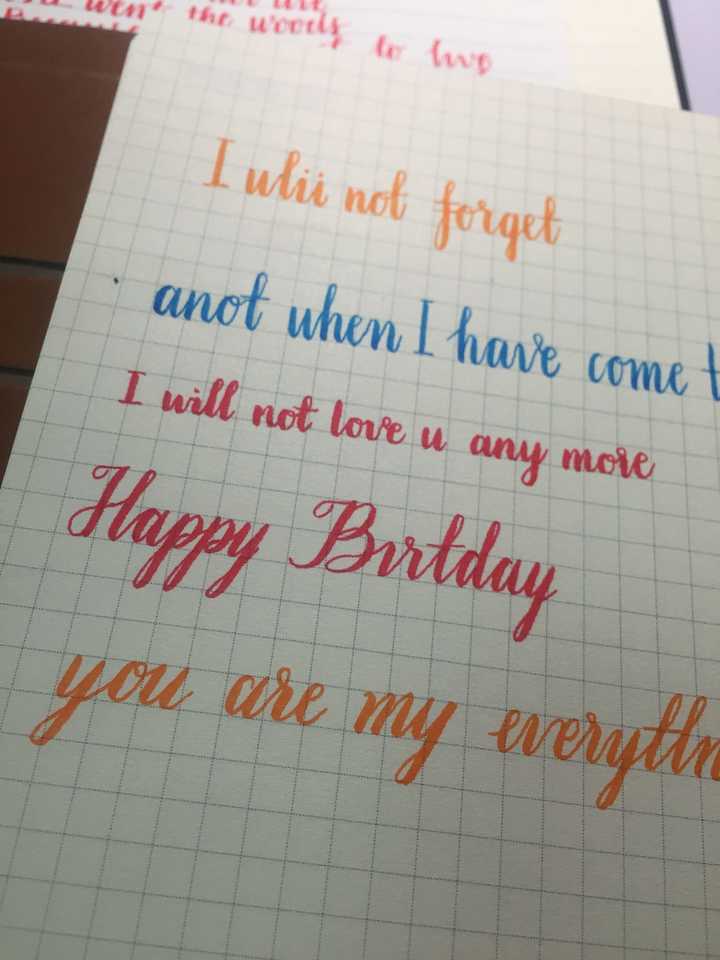 went the woods
to live
I ulii not forget
anot uhen I have come t
I will not love u any more
Happy Birtday
you are my everythn